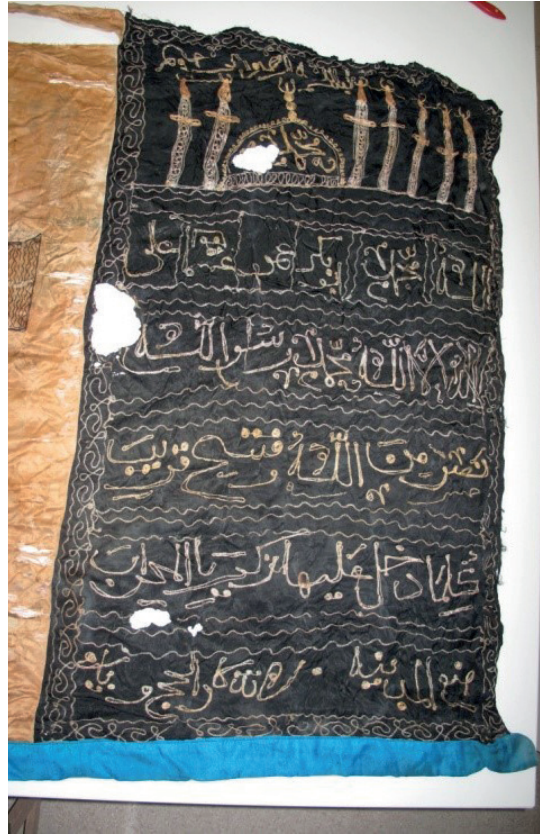 بسم الله الرحمن الرحيم
الله محمد ابوبكر عمر عثمان علي
لا اله الا الله محمد رسول الله
نصر من الله وفتح قريب
كلما دخل عليها زكريا المحراب
المدينه تذكار الحج